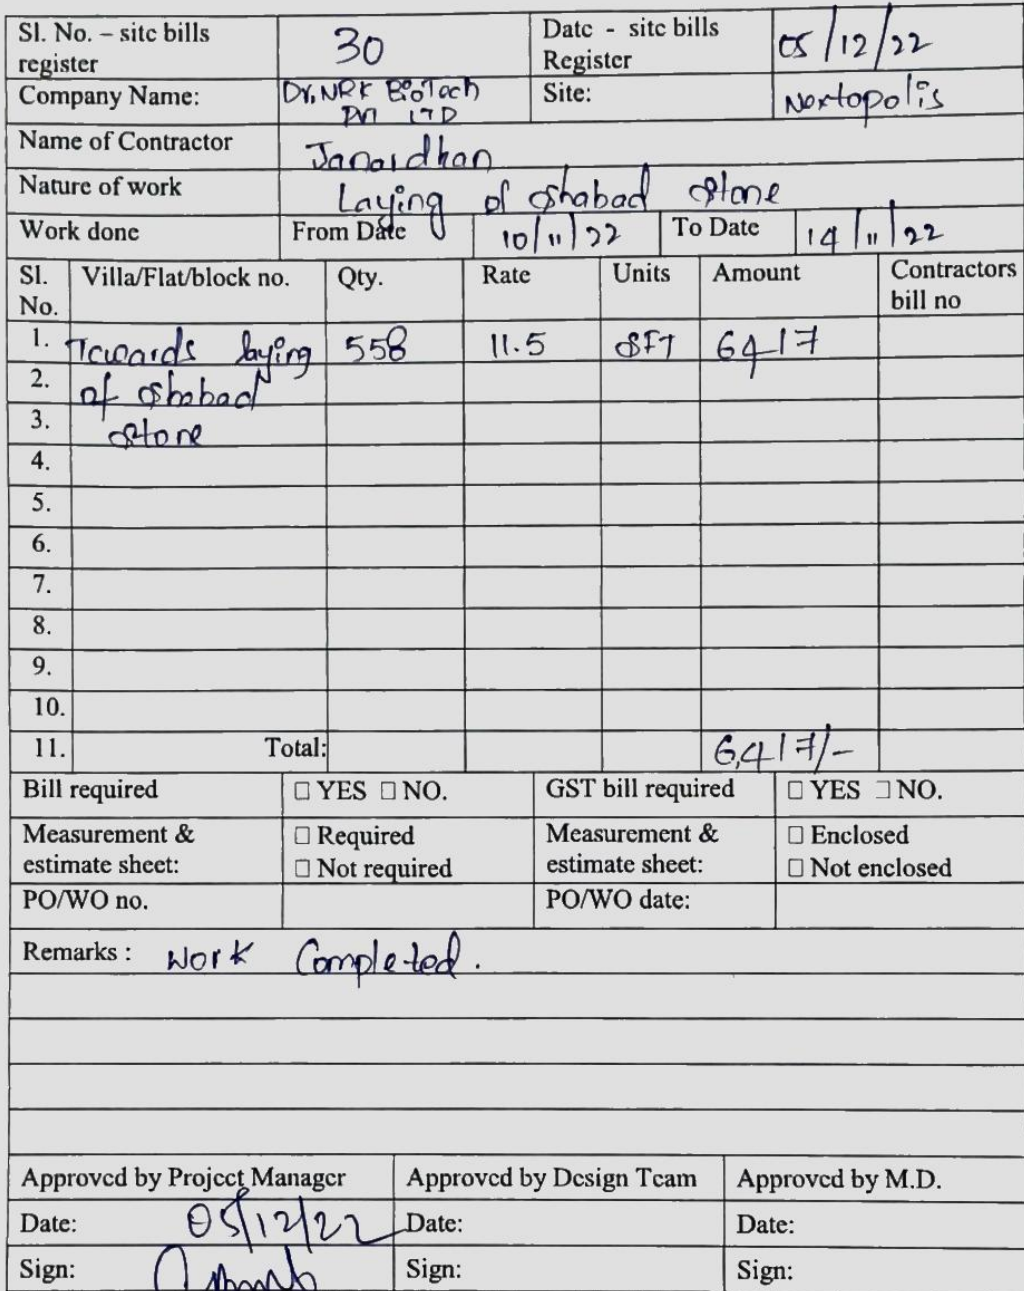 Sl. No. – site bills register 30 Date - site bills Register 05/12/22
Company Name: Dr. NRK BioTech Pvt LTD Site: Nextopolis
Name of Contractor Janardhan
Nature of work Laying of Shabad Stone
Work done From Date 10/11/22 To Date 14/11/22
Sl. No. Villa/Flat/block no. Qty. Rate Units Amount Contractors bill no
1. Towards laying 558 11.5 SFT 6417
2. of Shabad
3. Stone
4.
5.
6.
7.
8.
9.
10.
11. Total: 6,417/-
Bill required □ YES □ NO. GST bill required □ YES □ NO.
Measurement & estimate sheet: □ Required □ Not required Measurement & estimate sheet: □ Enclosed □ Not enclosed
PO/WO no. PO/WO date:
Remarks : Work Completed.
Approved by Project Manager Approved by Design Team Approved by M.D.
Date: 05/12/22 Date: Date:
Sign: Sign: Sign: